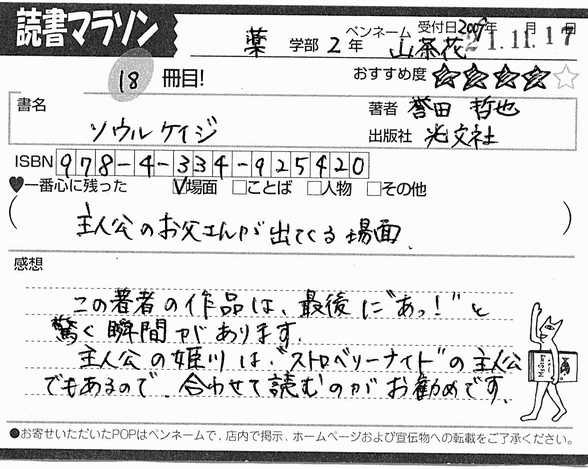 読書マラソン
薬 学部 2年 ペンネーム 山茶花 受付日 2009年 月 日
21.11.17
18 冊目! おすすめ度 ★★★★☆
書名 ソウルケイジ
著者 誉田 哲也
出版社 光文社
ISBN 978-4-334-925420
♥一番心に残った ☑場面 □ことば □人物 □その他
(主人公のお父さんが出てくる場面.)
感想
この著者の作品は、最後に"あっ!"と
驚く瞬間があります.
主人公の姫川は、"ストロベリーナイト"の主人公
でもあるので、合わせて読むのがお勧めです.
●お寄せいただいたPOPはペンネームで、店内で掲示、ホームページおよび宣伝物への転載をご了承ください。